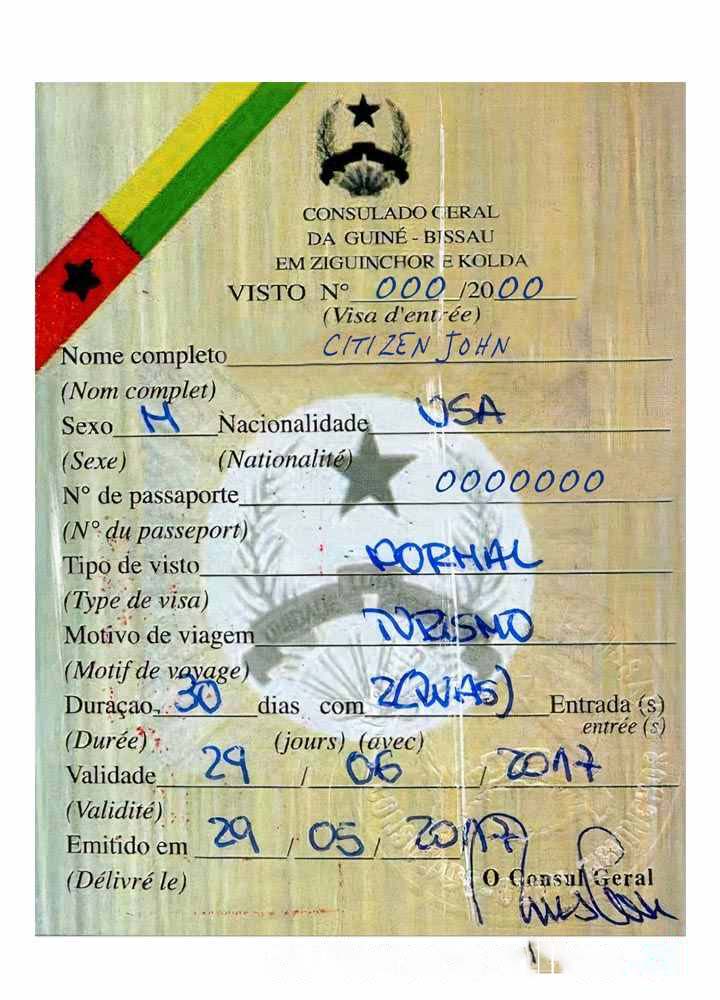 CONSULADO GERAL
DA GUINÉ - BISSAU
EM ZIGUINCHOR E KOLDA
VISTO Nº 000 /2000
(Visa d'entrée)
Nome completo CITIZEN JOHN
(Nom complet)
Sexo M Nacionalidade USA
(Sexe) (Nationalité)
Nº de passaporte 0000000
(Nº du passeport)
Tipo de visto NORMAL
(Type de visa)
Motivo de viagem TURISMO
(Motif de voyage)
Duraçao 30 dias com 2(DUAS) Entrada (s)
(Durée) (jours) (avec) entrée (s)
Validade 29 / 06 / 2017
(Validité)
Emitido em 29 / 05 / 2017
(Délivré le) O Consul Geral